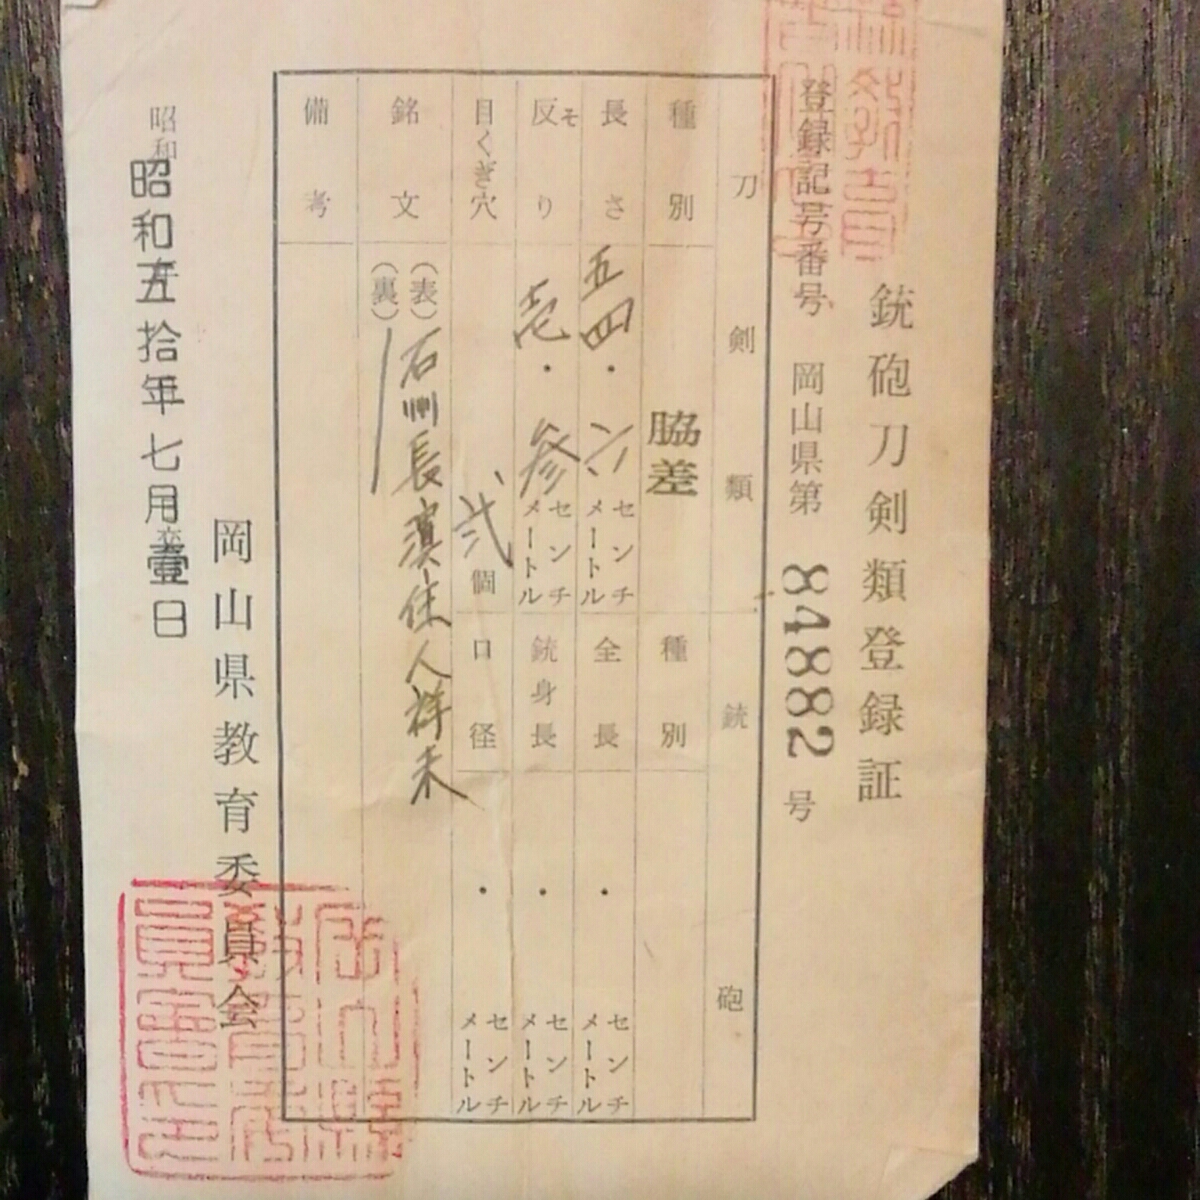 銃砲刀剣類登録証
登録記号番号 岡山県第 84882 号
刀剣類 銃砲
種別 脇差 種別
長さ 五四・ センチメートル 全長 ・ センチメートル
反り そ 壱・参 センチメートル 銃身長 ・ センチメートル
目くぎ穴 弐 個 口径 ・ センチメートル
銘文 (表) 石州長濱住人祥末
(裏)
備考
岡山県教育委員会
昭和
昭和五拾年七月壹日
岡山県教育委員会印